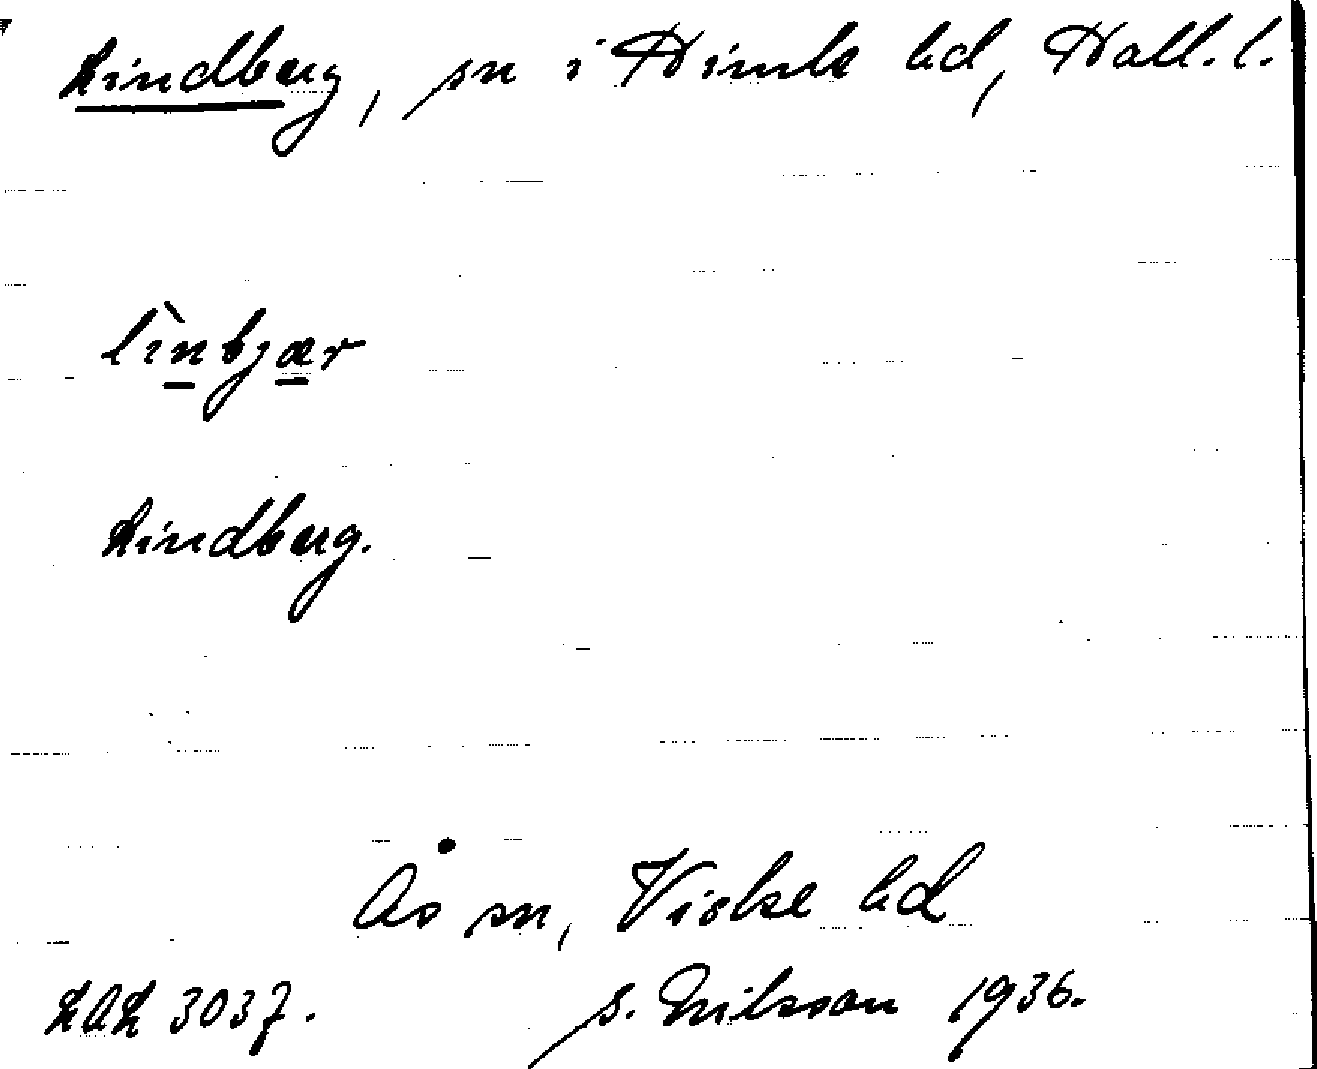 Lindberg, sn i Himle hd, Hall. l.
lìnbjær
Lindberg.
Ås sn, Viske hd
LAL 3037. S. Erikson 1936.